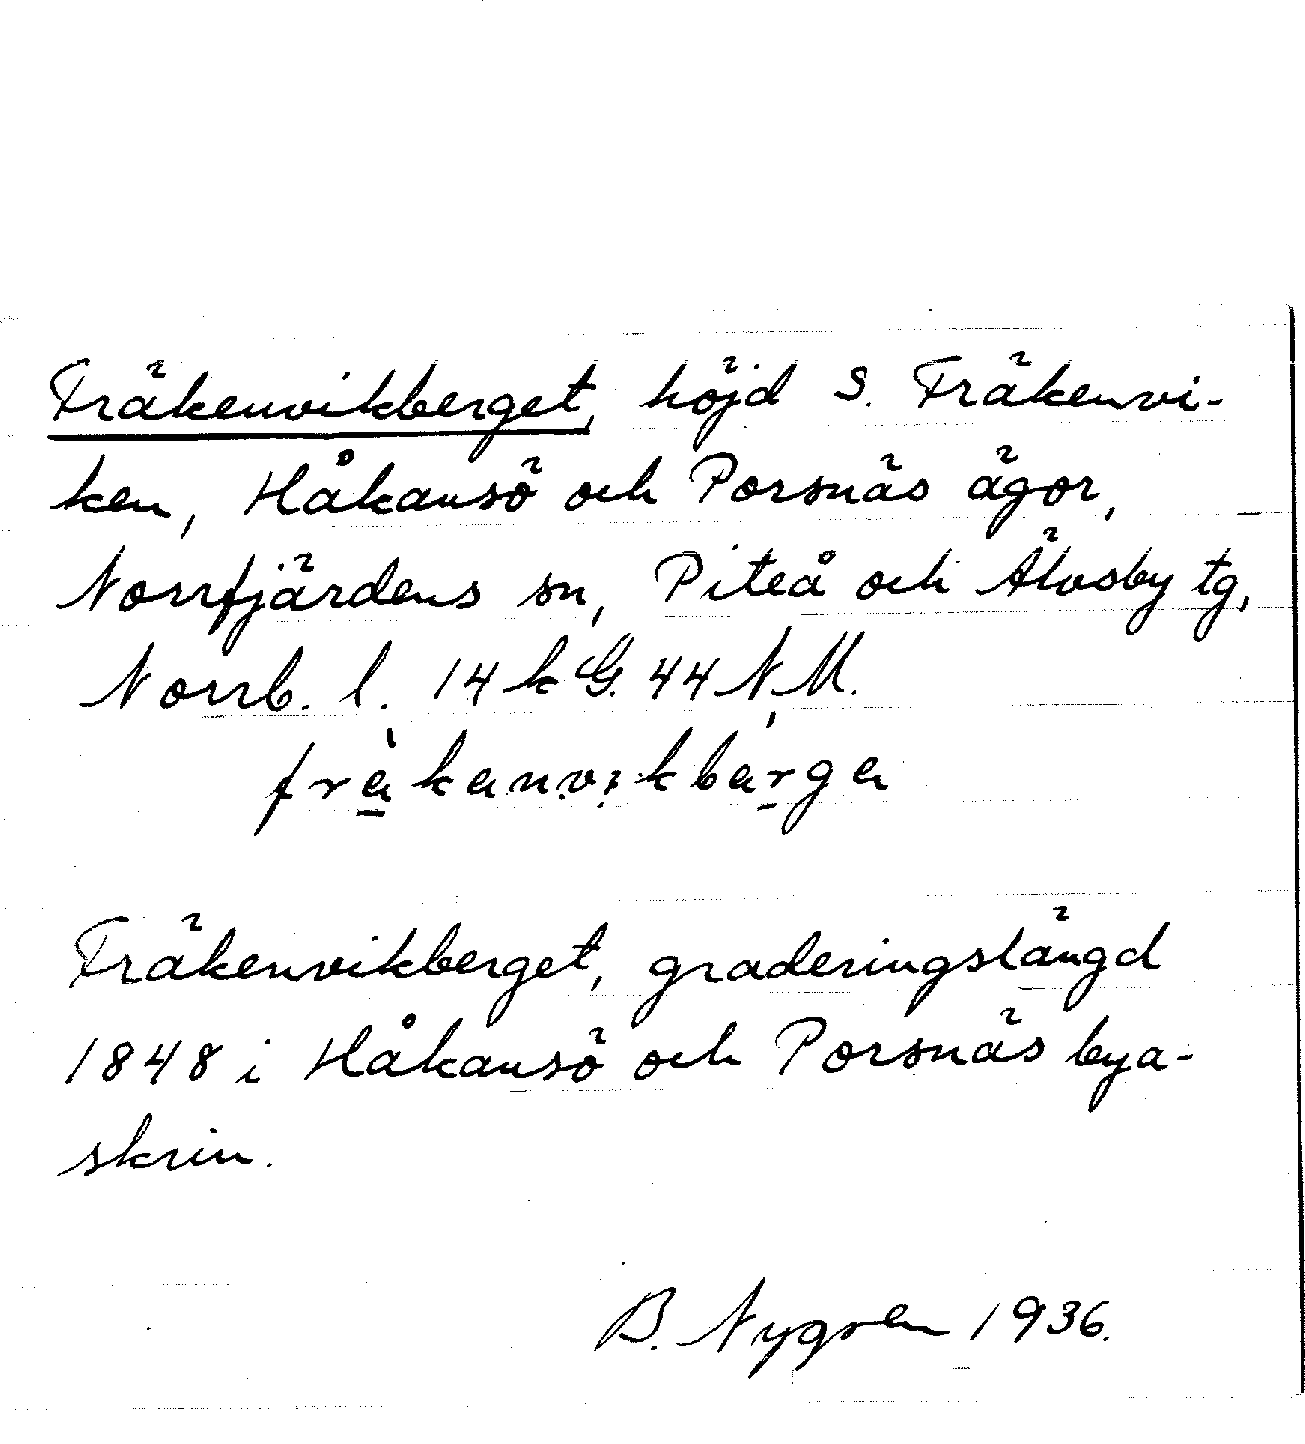 Fräkenvikberget, höjd S. Fräkenvi-
ken, Håkansö och Porsnäs ägor,
Norrfjärdens sn, Piteå och Älvsby tg,
Norrb. l. 14 k G. 44 N.M.
Fräkenvikberget, graderingslängd
1848 i Håkansö och Porsnäs bya-
skrin.
B. Nygren 1936.